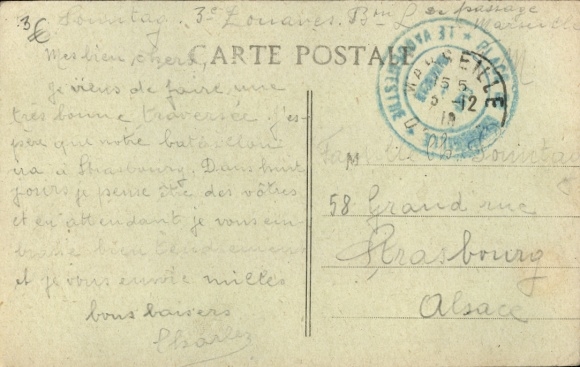 3€
Sonntag. 3e Zouaves. Bon L en passage
Marseille
CARTE POSTALE
Mes bien chers,
je viens de faire une
très bonne traversée j'es-
père que notre bataillon
ira à Strasbourg. Dans huit
jours je pense être des vôtres
et en attendant je vous em-
brasse bien tendrement
et je vous envoie milles
bons baisers
Charles
MARSEILLE
5 5
5-12
18
PLACE
M
Famille Sonntag
58 Grand rue
Strasbourg
Alsace